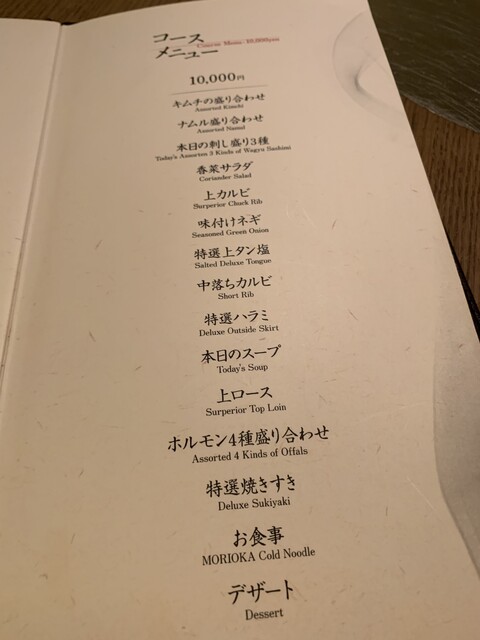 コース
Course Menu: 10,000yen
メニュー
10,000円
キムチの盛り合わせ
Assorted Kimchi
ナムル盛り合わせ
Assorted Namul
本日の刺し盛り3種
Today's Assorten 3 Kinds of Wagyu Sashimi
香菜サラダ
Coriander Salad
上カルビ
Surperior Chuck Rib
味付けネギ
Seasoned Green Onion
特選上タン塩
Salted Deluxe Tongue
中落ちカルビ
Short Rib
特選ハラミ
Deluxe Outside Skirt
本日のスープ
Today's Soup
上ロース
Surperior Top Loin
ホルモン4種盛り合わせ
Assorted 4 Kinds of Offals
特選焼きすき
Deluxe Sukiyaki
お食事
MORIOKA Cold Noodle
デザート
Dessert